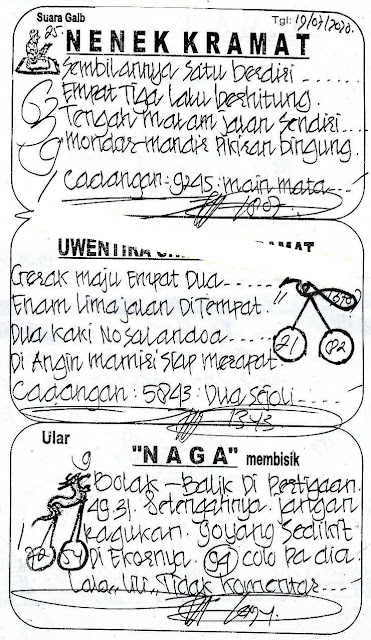 Suara Galb
Tgl: 19/07/2020.
25.
NENEK KRAMAT
Sembilannya Satu berdiri
Empat Tiga lalu berhitung.
Tengah malam jalan Sendiri
Mondar-mandir Pikiran bingung.
6
3
9
1
Cadangan: 9245: main mata
1807.
UWENTIRA KRAMAT
Gerak maju Empat Dua
Enam Lima jalan DiTempat."
Dua kaki No
Di Angin mamiri Siap merapat.
21
82
Cadangan: 5843: Dua Sejoli
1343
Ular
9
"NAGA" membisik
Bolak-Balik Di Pertigaan.
49.31. Setengahnya jangan
Ragukan. Goyang Sedikit
Di Ekornya. 94 colo pa dia
Lala,, Uli,, Tidak komentar
1
54